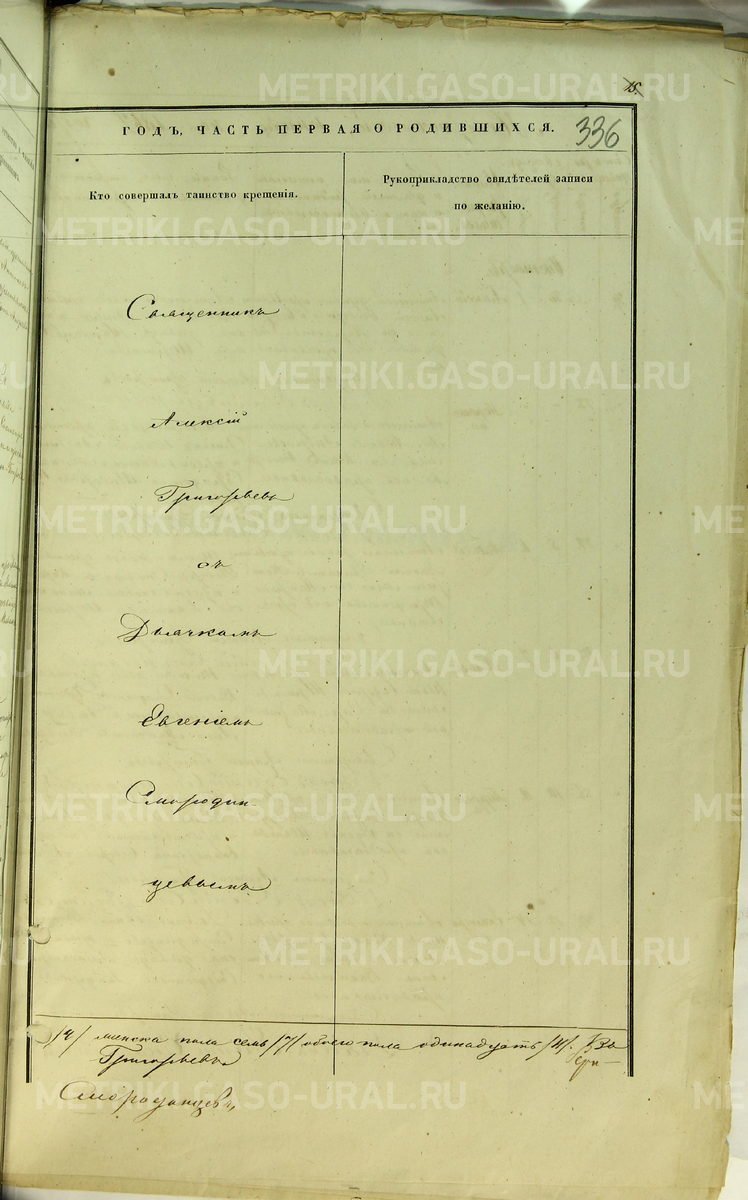 15.
ГОДЪ, ЧАСТЬ ПЕРВАЯ О РОДИВШИХСЯ.
336
Кто совершалъ таинство крещенія.
Рукоприкладство свидѣтелей записи
по желанію.
Священникъ
Алексій
Григорьевъ
съ
Дьячкомъ
Евгеніемъ
Смородин-
цевымъ
/4/ женска пола семь /7/ обоего пола одинадцать /11/.
Григорьевъ
Смородинцевъ
METRIKI.GASO-URAL.RU